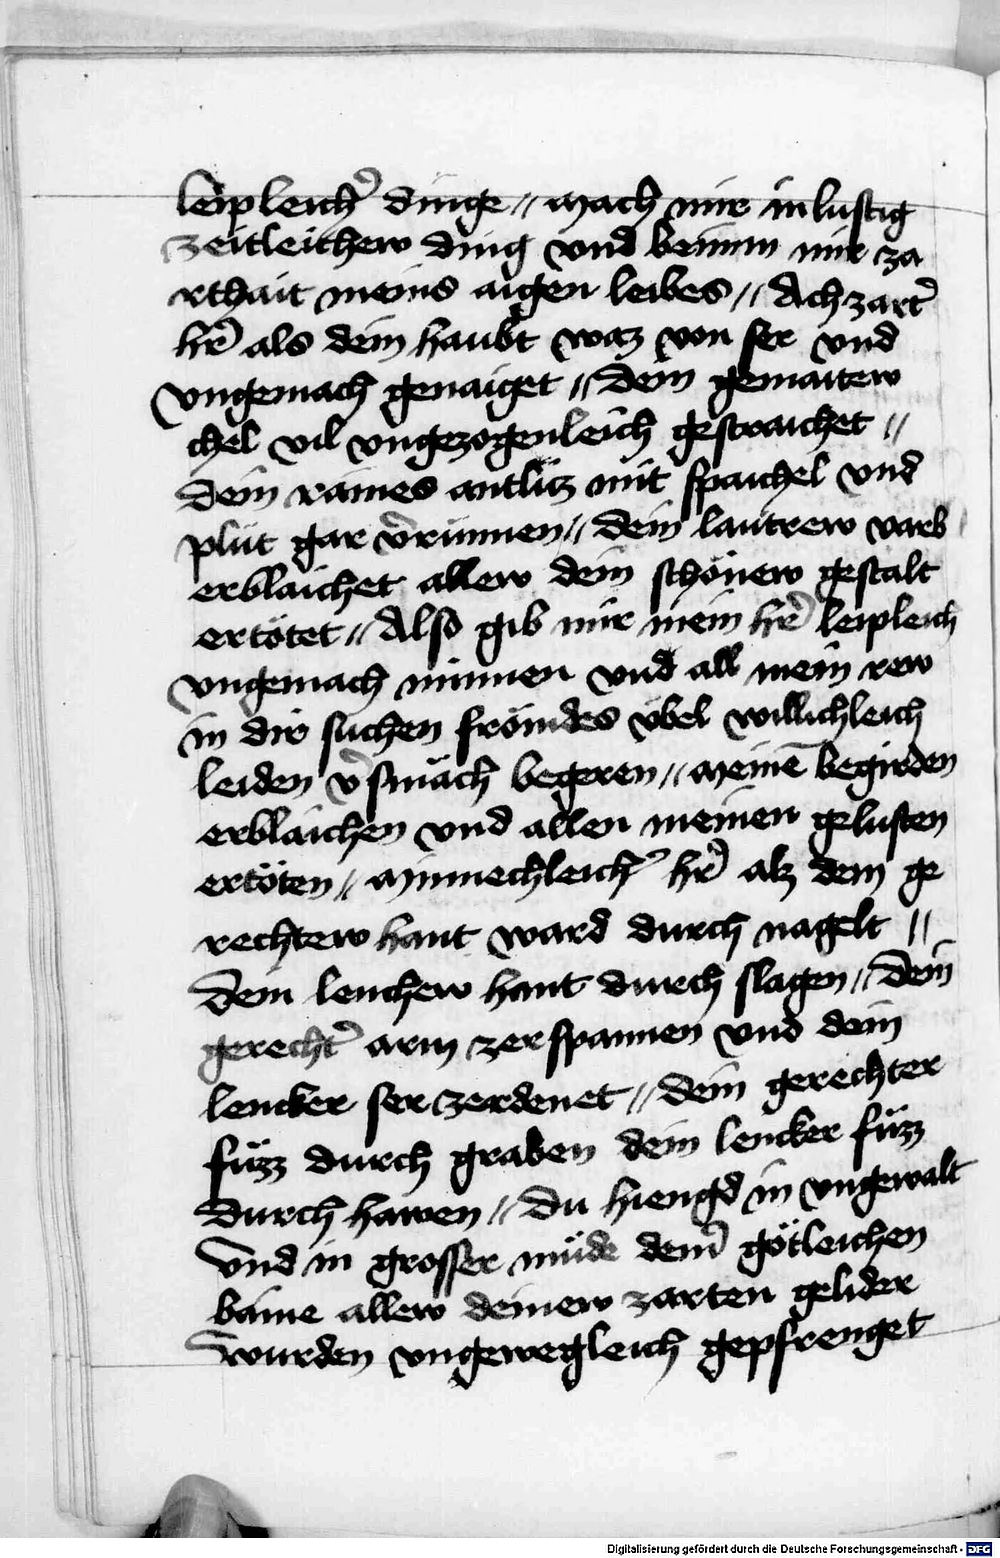 leipleicher dinge // mach mir in lustig
zeitleichew ding vnd benimm mir za
rthait meins aigen leibes // Ach zarter
hr̄ als dein haubt waz von ser vnd
vngemach genaiget // Dein gemaitew
chel vil vngezogenleich gestraichet //
Dein raines antlüz mit spaichel vnd
plüt gar v̄rünnen // dein lautrew varb
erblaichet allew dein schönew gestalt
ertötet // Also gib mir mein hr̄ leipleich
vngemach minnen vnd all mein rew
in dir suchen frömdes vbel willichleich
leiden v̄smäch begeren // meinē begirden
erblaichen vnd allen meinen gelusten
ertöten // Minnechleicher hr̄ alz dein ge
rechtew hant ward durch nagelt //
Dein lenchew hant durch slagen // Dein
gerechter arm zerspannen vnd dein
lencker ser zerdenet // Dein gerechter
füzz durch graben dein lencker füzz
durch hawen // Du hiengd in vngewalt
Vnd in grosser müde deiner götleichen
baine allew deinew zarten gelider
wurden vngewegleich gepfrenget
Digitalisierung gefördert durch die Deutsche Forschungsgemeinschaft - DFG